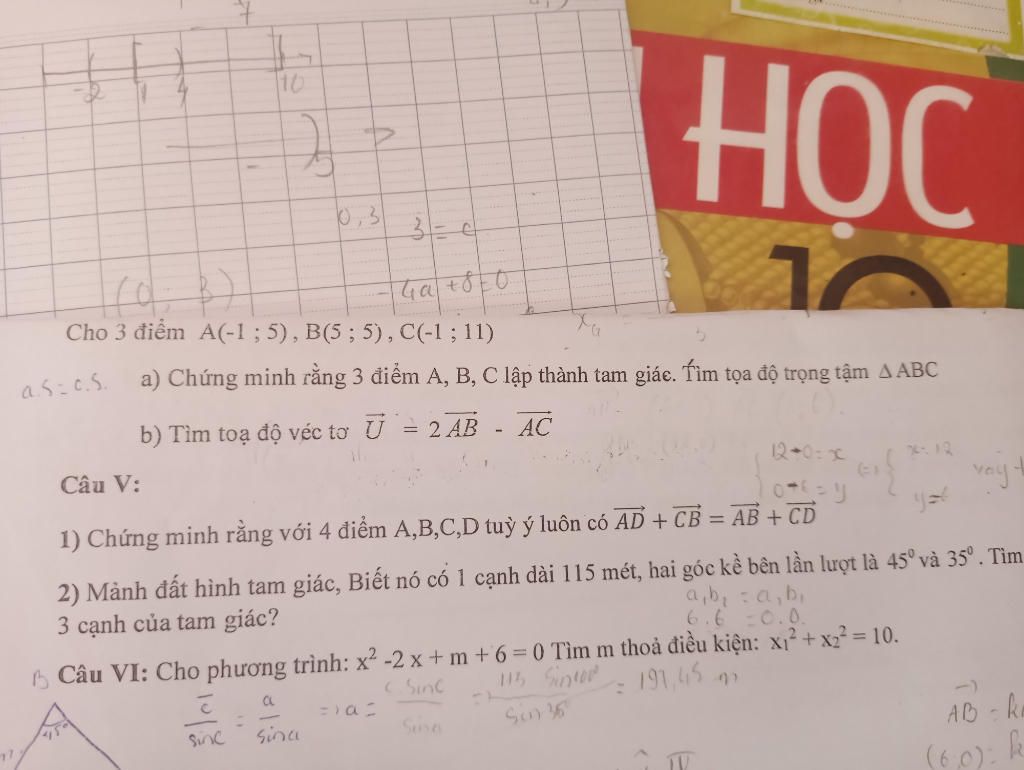 7
-2 1 4 10
5 >
0,3 3 = c
(0; 3) - 4a + 8 = 0
HỌC
10
Cho 3 điểm A(-1 ; 5) , B(5 ; 5) , C(-1 ; 11)
a) Chứng minh rằng 3 điểm A, B, C lập thành tam giác. Tìm tọa độ trọng tâm Δ ABC
b) Tìm toạ độ véc tơ U⃗ = 2AB⃗ - AC⃗
12+0=x (=) x=12
0+6=y y=6
Câu V:
1) Chứng minh rằng với 4 điểm A,B,C,D tuỳ ý luôn có AD⃗ + CB⃗ = AB⃗ + CD⃗
2) Mảnh đất hình tam giác, Biết nó có 1 cạnh dài 115 mét, hai góc kề bên lần lượt là 45⁰ và 35⁰ . Tìm
3 cạnh của tam giác?
a₁b₂ = a₂b₁
6.6 = 0.0
Câu VI: Cho phương trình: x² -2 x + m + 6 = 0 Tìm m thoả điều kiện: x₁² + x₂² = 10.
B
45⁰
c/sinc = a/sina => a = c.sinc/sina = 115 sin100⁰/sin35⁰ = 197,45 m
AB⃗ = k
(6;0) = k